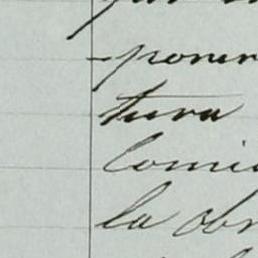 -poner
tura
Comi
la obr